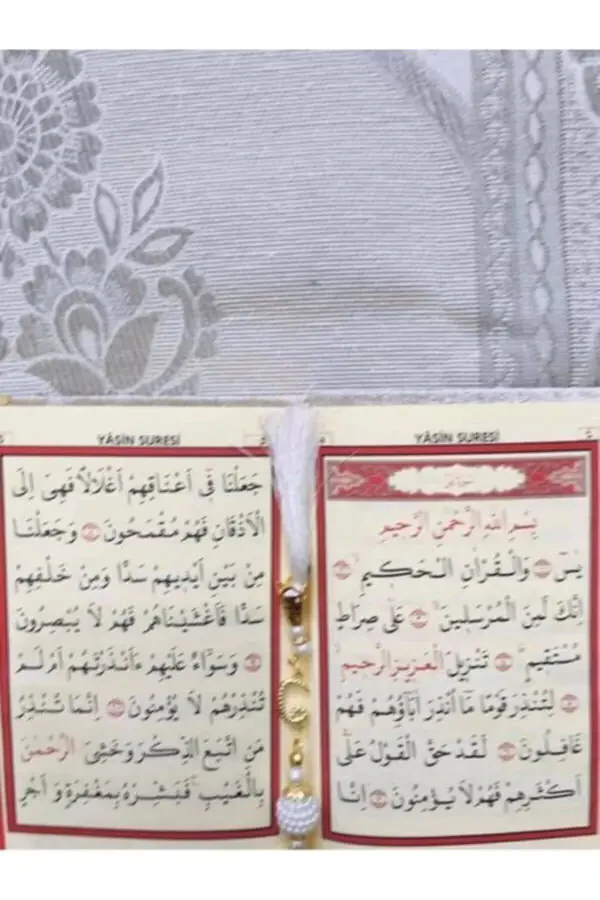 YÂSİN SURESİ
بِسْمِ اللّٰهِ الرَّحْمٰنِ الرَّحٖيمِ
يٰسٓ وَالْقُرْاٰنِ الْحَكٖيمِ
اِنَّكَ لَمِنَ الْمُرْسَلٖينَ عَلٰى صِرَاطٍ
مُسْتَقٖيمٍ تَنْزٖيلَ الْعَزٖيزِ الرَّحٖيمِ
لِتُنْذِرَ قَوْمًا مَٓا اُنْذِرَ اٰبَٓاؤُهُمْ فَهُمْ
غَافِلُونَ لَقَدْ حَقَّ الْقَوْلُ عَلٰٓى
اَكْثَرِهِمْ فَهُمْ لَا يُؤْمِنُونَ اِنَّا
YÂSİN SURESİ
جَعَلْنَا فٖٓى اَعْنَاقِهِمْ اَغْلَالًا فَهِىَ اِلَى
الْاَذْقَانِ فَهُمْ مُقْمَحُونَ وَجَعَلْنَا
مِنْ بَيْنِ اَيْدٖيهِمْ سَدًّا وَمِنْ خَلْفِهِمْ
سَدًّا فَاَغْشَيْنَاهُمْ فَهُمْ لَا يُبْصِرُونَ
وَسَوَٓاءٌ عَلَيْهِمْ ءَاَنْذَرْتَهُمْ اَمْ لَمْ
تُنْذِرْهُمْ لَا يُؤْمِنُونَ اِنَّمَا تُنْذِرُ
مَنِ اتَّبَعَ الذِّكْرَ وَخَشِىَ الرَّحْمٰنَ
بِالْغَيْبِ فَبَشِّرْهُ بِمَغْفِرَةٍ وَاَجْرٍ